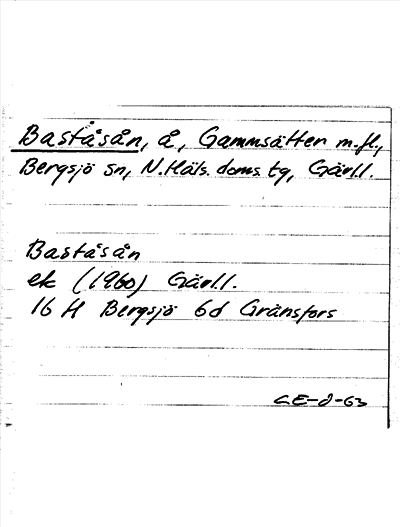 Baståsån, å, Gammsätter m.fl.,
Bergsjö sn, N.Häls. doms. tg, Gävl.l.
Baståsån
ek (1960) Gävl.l.
16 H Bergsjö 6d Gränsfors